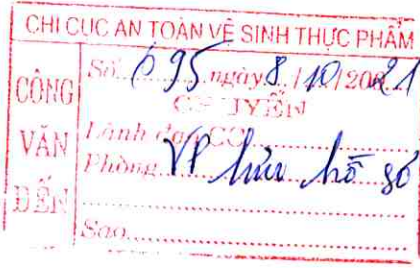 CHI CỤC AN TOÀN VỆ SINH THỰC PHẨM
CÔNG VĂN ĐẾN
Số 695 ngày 8/10/2021
CHUYỂN
Lãnh đạo CC
Phòng VP lưu hồ sơ
Sao